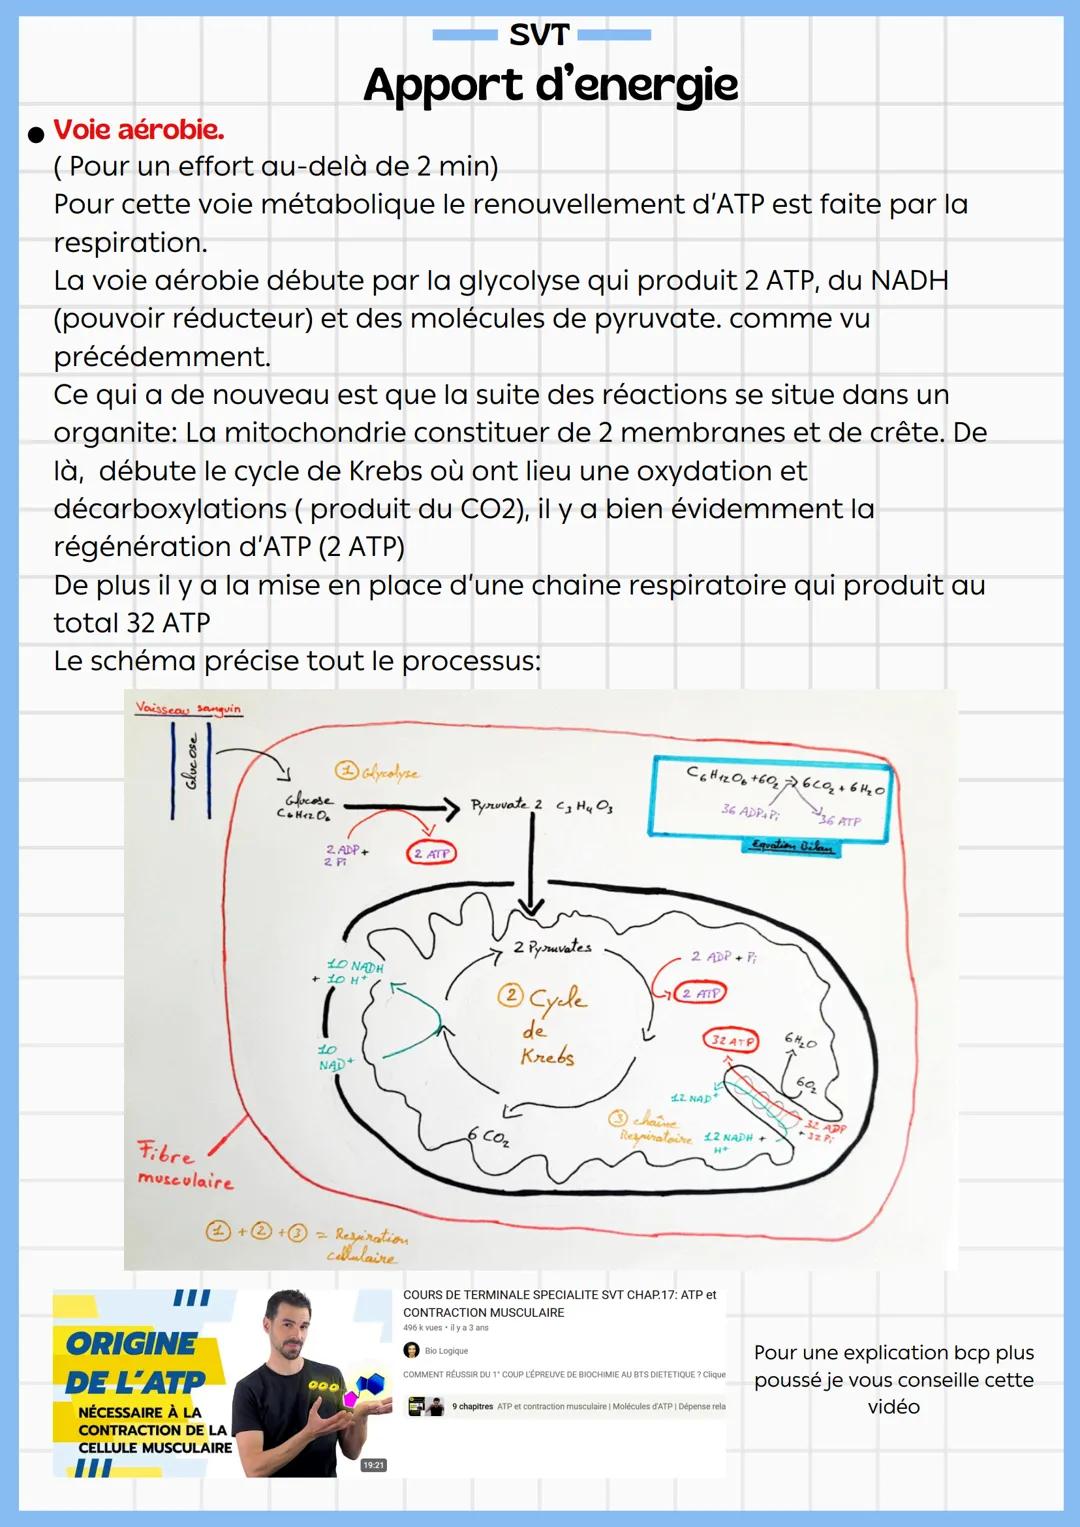 SVT
Apport d'energie
Voie aérobie.
( Pour un effort au-delà de 2 min)
Pour cette voie métabolique le renouvellement d'ATP est faite par la
respiration.
La voie aérobie débute par la glycolyse qui produit 2 ATP, du NADH
(pouvoir réducteur) et des molécules de pyruvate. comme vu
précédemment.
Ce qui a de nouveau est que la suite des réactions se situe dans un
organite: La mitochondrie constituer de 2 membranes et de crête. De
là,  débute le cycle de Krebs où ont lieu une oxydation et
décarboxylations ( produit du CO2), il y a bien évidemment la
régénération d'ATP (2 ATP)
De plus il y a la mise en place d'une chaine respiratoire qui produit au
total 32 ATP
Le schéma précise tout le processus:
Vaisseau sanguin
Glucose
① Glycolyse
Glucose
C6H12O6
Pyruvate 2 C3H4O3
2 ADP +
2 Pi
2 ATP
C6H12O6 + 6O2 ⇒ 6CO2 + 6H2O
36 ADP+Pi
36 ATP
Equation Bilan
2 Pyruvates
10 NADH
+ 10 H+
10
NAD+
② Cycle
de
Krebs
2 ADP + Pi
2 ATP
32 ATP
6H2O
6O2
12 NAD+
③ chaîne
Respiratoire
12 NADH +
H+
32 ADP
+ 32 Pi
6 CO2
Fibre
musculaire
① + ② + ③ = Respiration
cellulaire
ORIGINE
DE L'ATP
NÉCESSAIRE À LA
CONTRACTION DE LA
CELLULE MUSCULAIRE
19:21
COURS DE TERMINALE SPECIALITE SVT CHAP.17: ATP et
CONTRACTION MUSCULAIRE
496 k vues • il y a 3 ans
Bio Logique
COMMENT RÉUSSIR DU 1° COUP L'ÉPREUVE DE BIOCHIMIE AU BTS DIETETIQUE ? Clique
9 chapitres ATP et contraction musculaire | Molécules d'ATP | Dépense rela
Pour une explication bcp plus
poussé je vous conseille cette
vidéo